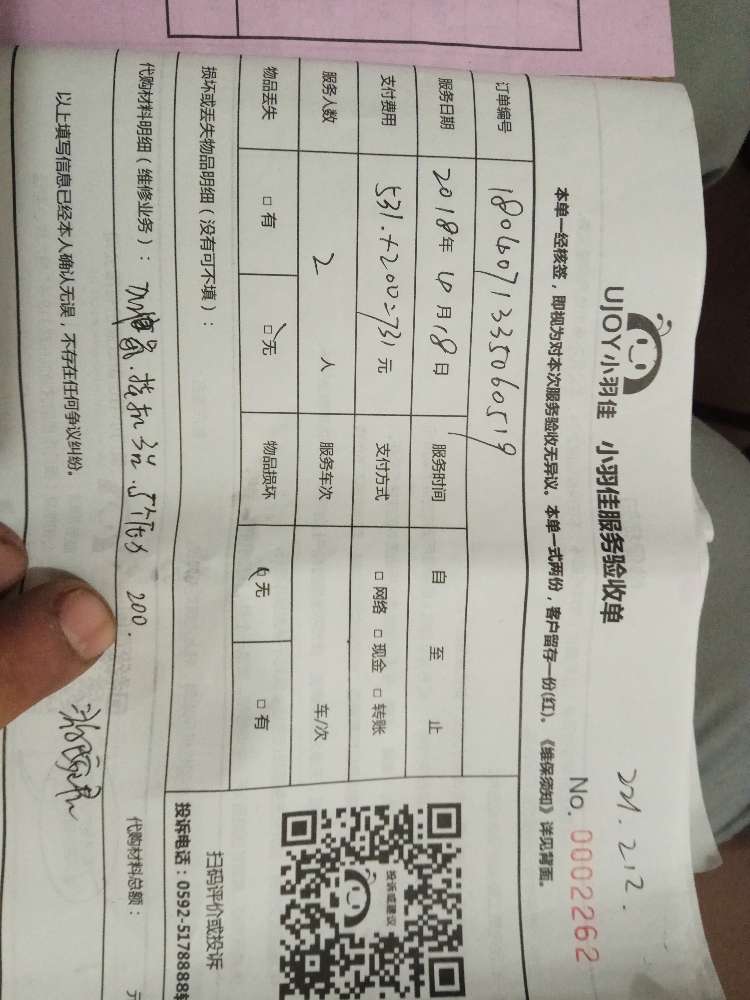 221.212.
UJOY小羽佳 小羽佳服务验收单
No. 0002262
本单一经核签，即视为对本次服务验收无异议。本单一式两份，客户留存一份(红)。《维保须知》详见背面。
订单编号 1806071335060519
服务日期 2018年 6月18日 服务时间 自 至 止
支付费用 531.+200=731元 支付方式 □ 网络 □ 现金 □ 转账
服务人数 2 人 服务车次 车/次
物品丢失 □ 有 □ 无 物品损坏 □ 无 □ 有
损坏或丢失物品明细（没有可不填）：
代购材料明细（维修业务）： 200.
代购材料总额： 元
以上填写信息已经本人确认无误，不存在任何争议纠纷。
投诉或建议
扫码评价或投诉
投诉电话：0592-5178888转